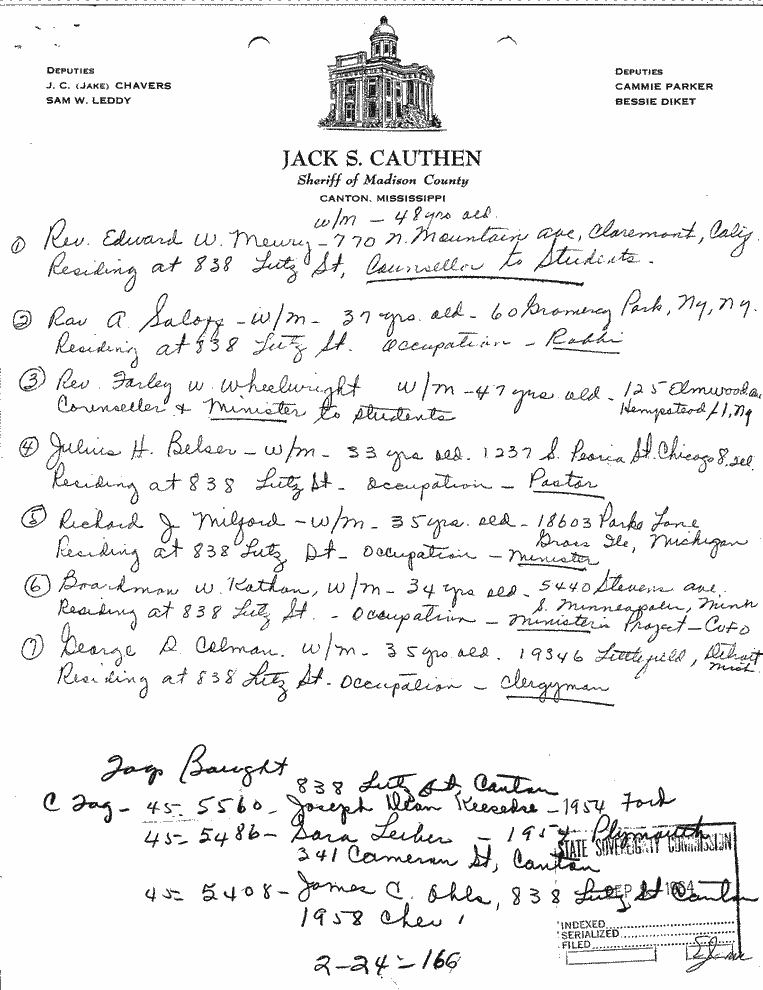 DEPUTIES
J. C. (JAKE) CHAVERS
SAM W. LEDDY
DEPUTIES
CAMMIE PARKER
BESSIE DIKET
JACK S. CAUTHEN
Sheriff of Madison County
CANTON, MISSISSIPPI
w/m - 48 yrs old.
① Rev. Edward W. - 770 N. Mountain Ave, Claremont, Calif.
Residing at 838 Lutz St, Counsellor to Students -
② Rav A. - W/m - 37 yrs. old - 60 Gramercy Park, Ny, Ny.
Residing at 838 Lutz St. Occupation - Rabbi
③ Rev. Farley W. Wheelwright W/m - 47 yrs old - 125 Elmwood
Counseller & Minister to students Hempstead Ny
④ Julius H. Belser - W/m - 33 yrs old. 1237 S. Peoria St. Chicago 8, Ill
Residing at 838 Lutz St - Occupation - Pastor
⑤ Richard J. Milford - W/m - 35 yrs. old - 18603 Parke Lane
Grosse Ile, Michigan
Residing at 838 Lutz St - Occupation - Minister
⑥ Boardman W. Kathan, W/m - 34 yrs old - 5440 Stevens Ave.
S. Minneapolis, Minn
Residing at 838 Lutz St. - Occupation - Project - CoFO
⑦ George D. Colman. W/m - 35 yrs old. 19346 Littlefield, Detroit
Mich.
Residing at 838 Lutz St. Occupation - Clergyman
Tags Bought
838 Lutz St, Canton
C Tag - 45-5560 - Joseph - 1954 Ford
45-5486 - Sara - 1954 Plymouth
341 Cameron St, Canton
STATE SOVEREIGNTY COMMISSION
45-5408 - James C. Ohls, 838 Lutz St Canton
SEP 1964
1958 Chev
INDEXED
SERIALIZED
FILED
2-24-166